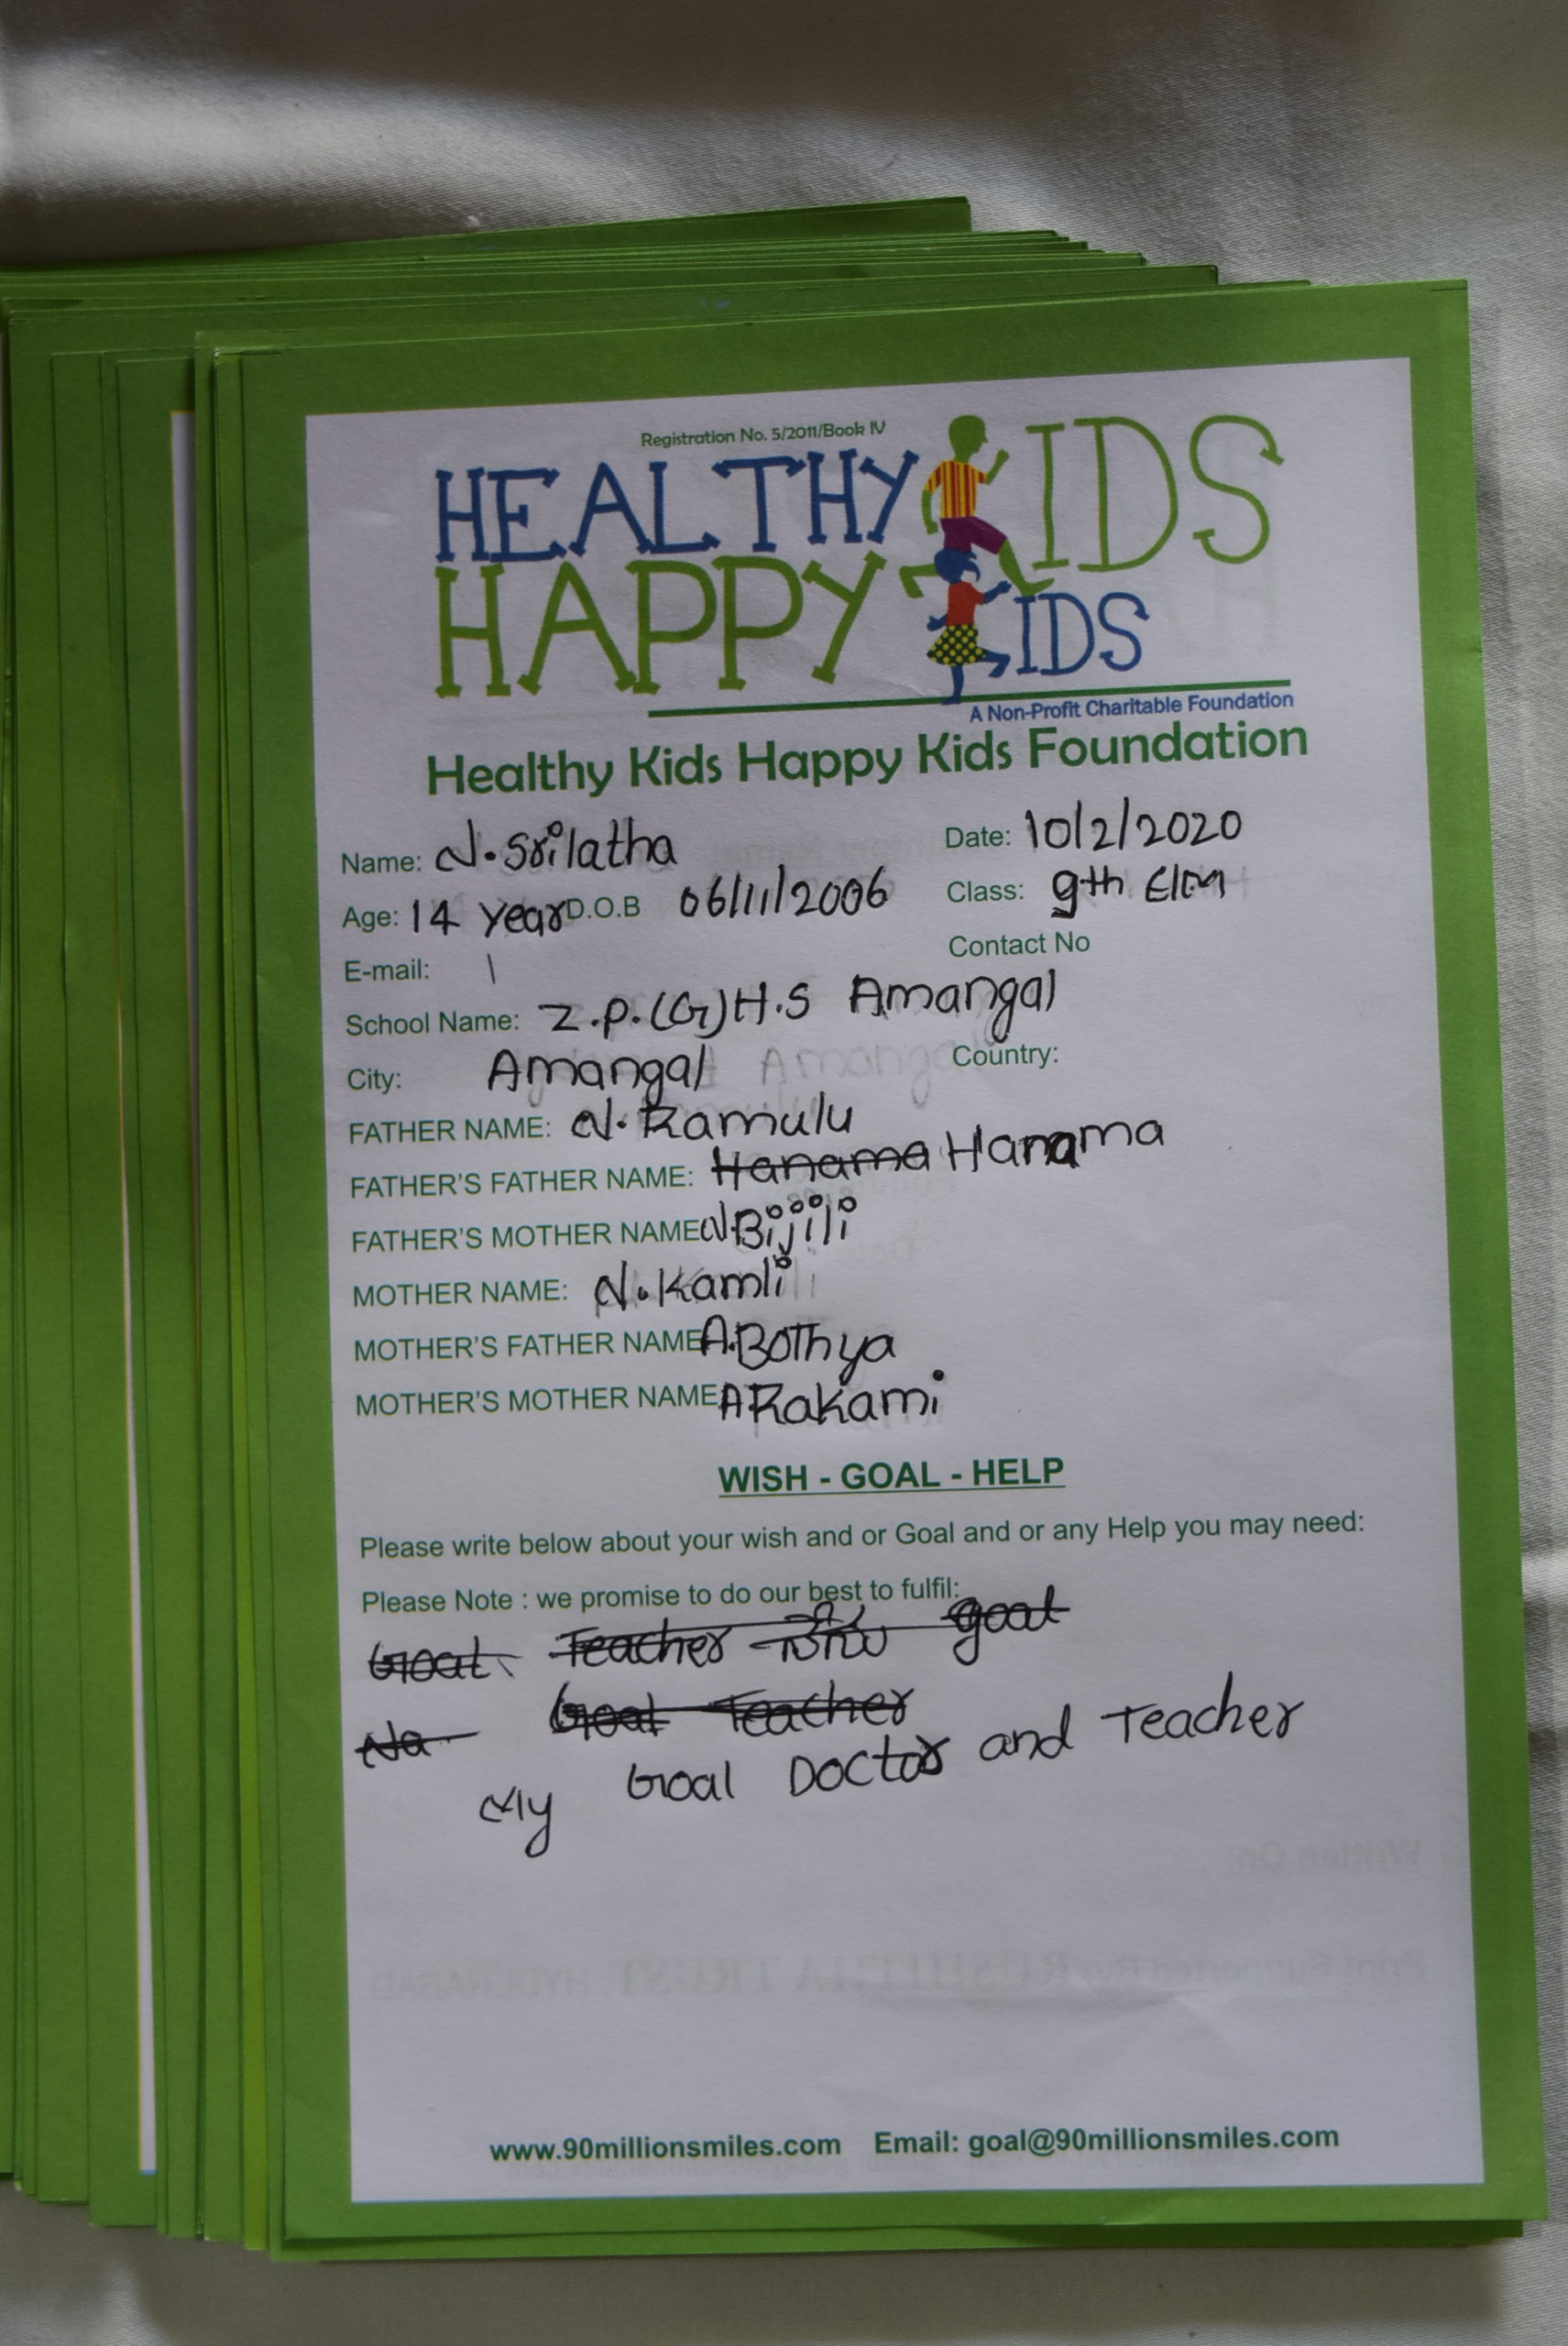 Registration No. 5/2011/Book IV
HEALTHY KIDS
HAPPY KIDS
A Non-Profit Charitable Foundation
Healthy Kids Happy Kids Foundation
Name: N. Srilatha Date: 10/2/2020
Age: 14 year D.O.B 06/11/2006 Class: 9th E/M
E-mail: Contact No
School Name: Z.P.(G)H.S Amangal
City: Amangal Country:
FATHER NAME: N. Ramulu
FATHER'S FATHER NAME: Hanama Hanama
FATHER'S MOTHER NAME N.Bijili
MOTHER NAME: N. Kamli
MOTHER'S FATHER NAME A.BOThya
MOTHER'S MOTHER NAME A Rakami
WISH - GOAL - HELP
Please write below about your wish and or Goal and or any Help you may need:
Please Note : we promise to do our best to fulfil:
Goal Teacher goal
Na Goal Teacher
My Goal Doctor and Teacher
Written On
Print Supported By HYDERABAD
www.90millionsmiles.com Email: goal@90millionsmiles.com